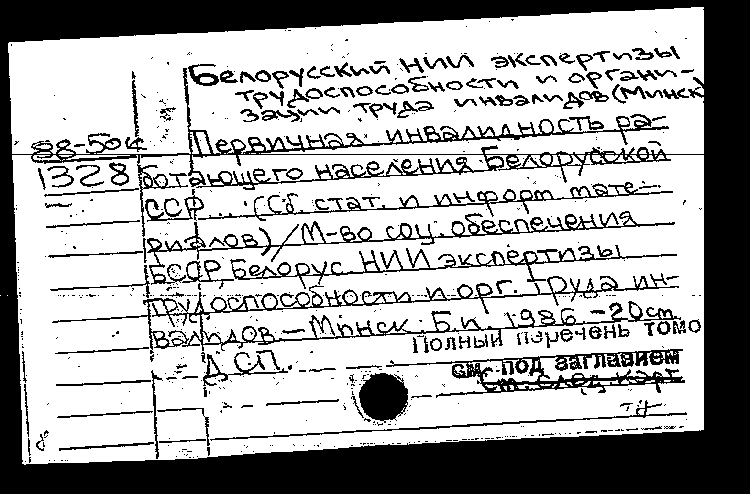 Белорусский НИИ экспертизы
трудоспособности и органи-
зации труда инвалидов (Минск)
88-50к
1328
Первичная инвалидность ра-
ботающего населения Белорусской
ССР ... (Сб. стат. и информ. мате-
риалов) / М-во соц. обеспечения
БССР, Белорус. НИИ экспертизы
трудоспособности и орг. труда ин-
валидов. — Минск. Б.и. 1986. - 20 см.
Полный перечень томо
ДСП.
см. под заглавием
см. след. карт.
8